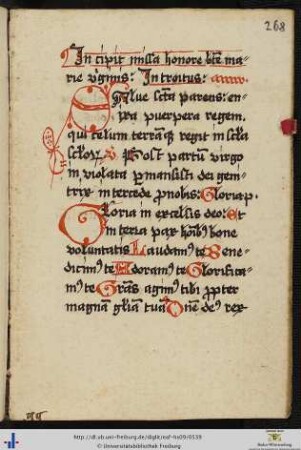 268
In cipit missa honore bte ma-
rie virginis: Introitus:
Salue scta parens: en-
ixa puerpera regem.
qui celum terramq regit in secla
seclorum V Post partum virgo
in violata permansisti dei gen-
trix intercede pro nobis: Gloria p.
Gloria in excelsis deo: Et
in terra pax hoibus bone
voluntatis Laudamus te Bene-
dicimus te Adoramus te Glorifica-
mus te Gras agimus tibi propter
magnam gliam tuam Dne deus rex
http://dl.ub.uni-freiburg.de/diglit/
© Universitätsbibliothek Freiburg